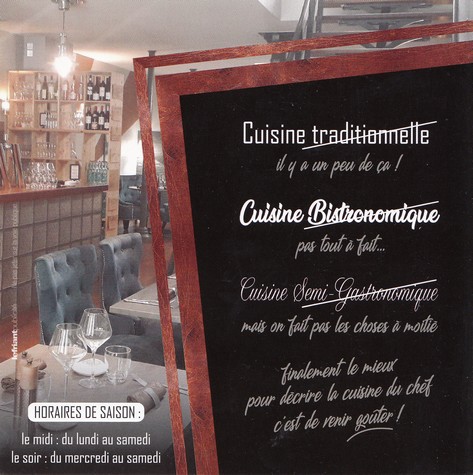 Cuisine traditionnelle
il y a un peu de ça !
Cuisine Bistronomique
pas tout à fait...
Cuisine Semi-Gastronomique
mais on fait pas les choses à moitié
finalement le mieux
pour décrire la cuisine du chef
c'est de venir goûter !
HORAIRES DE SAISON :
le midi : du lundi au samedi
le soir : du mercredi au samedi